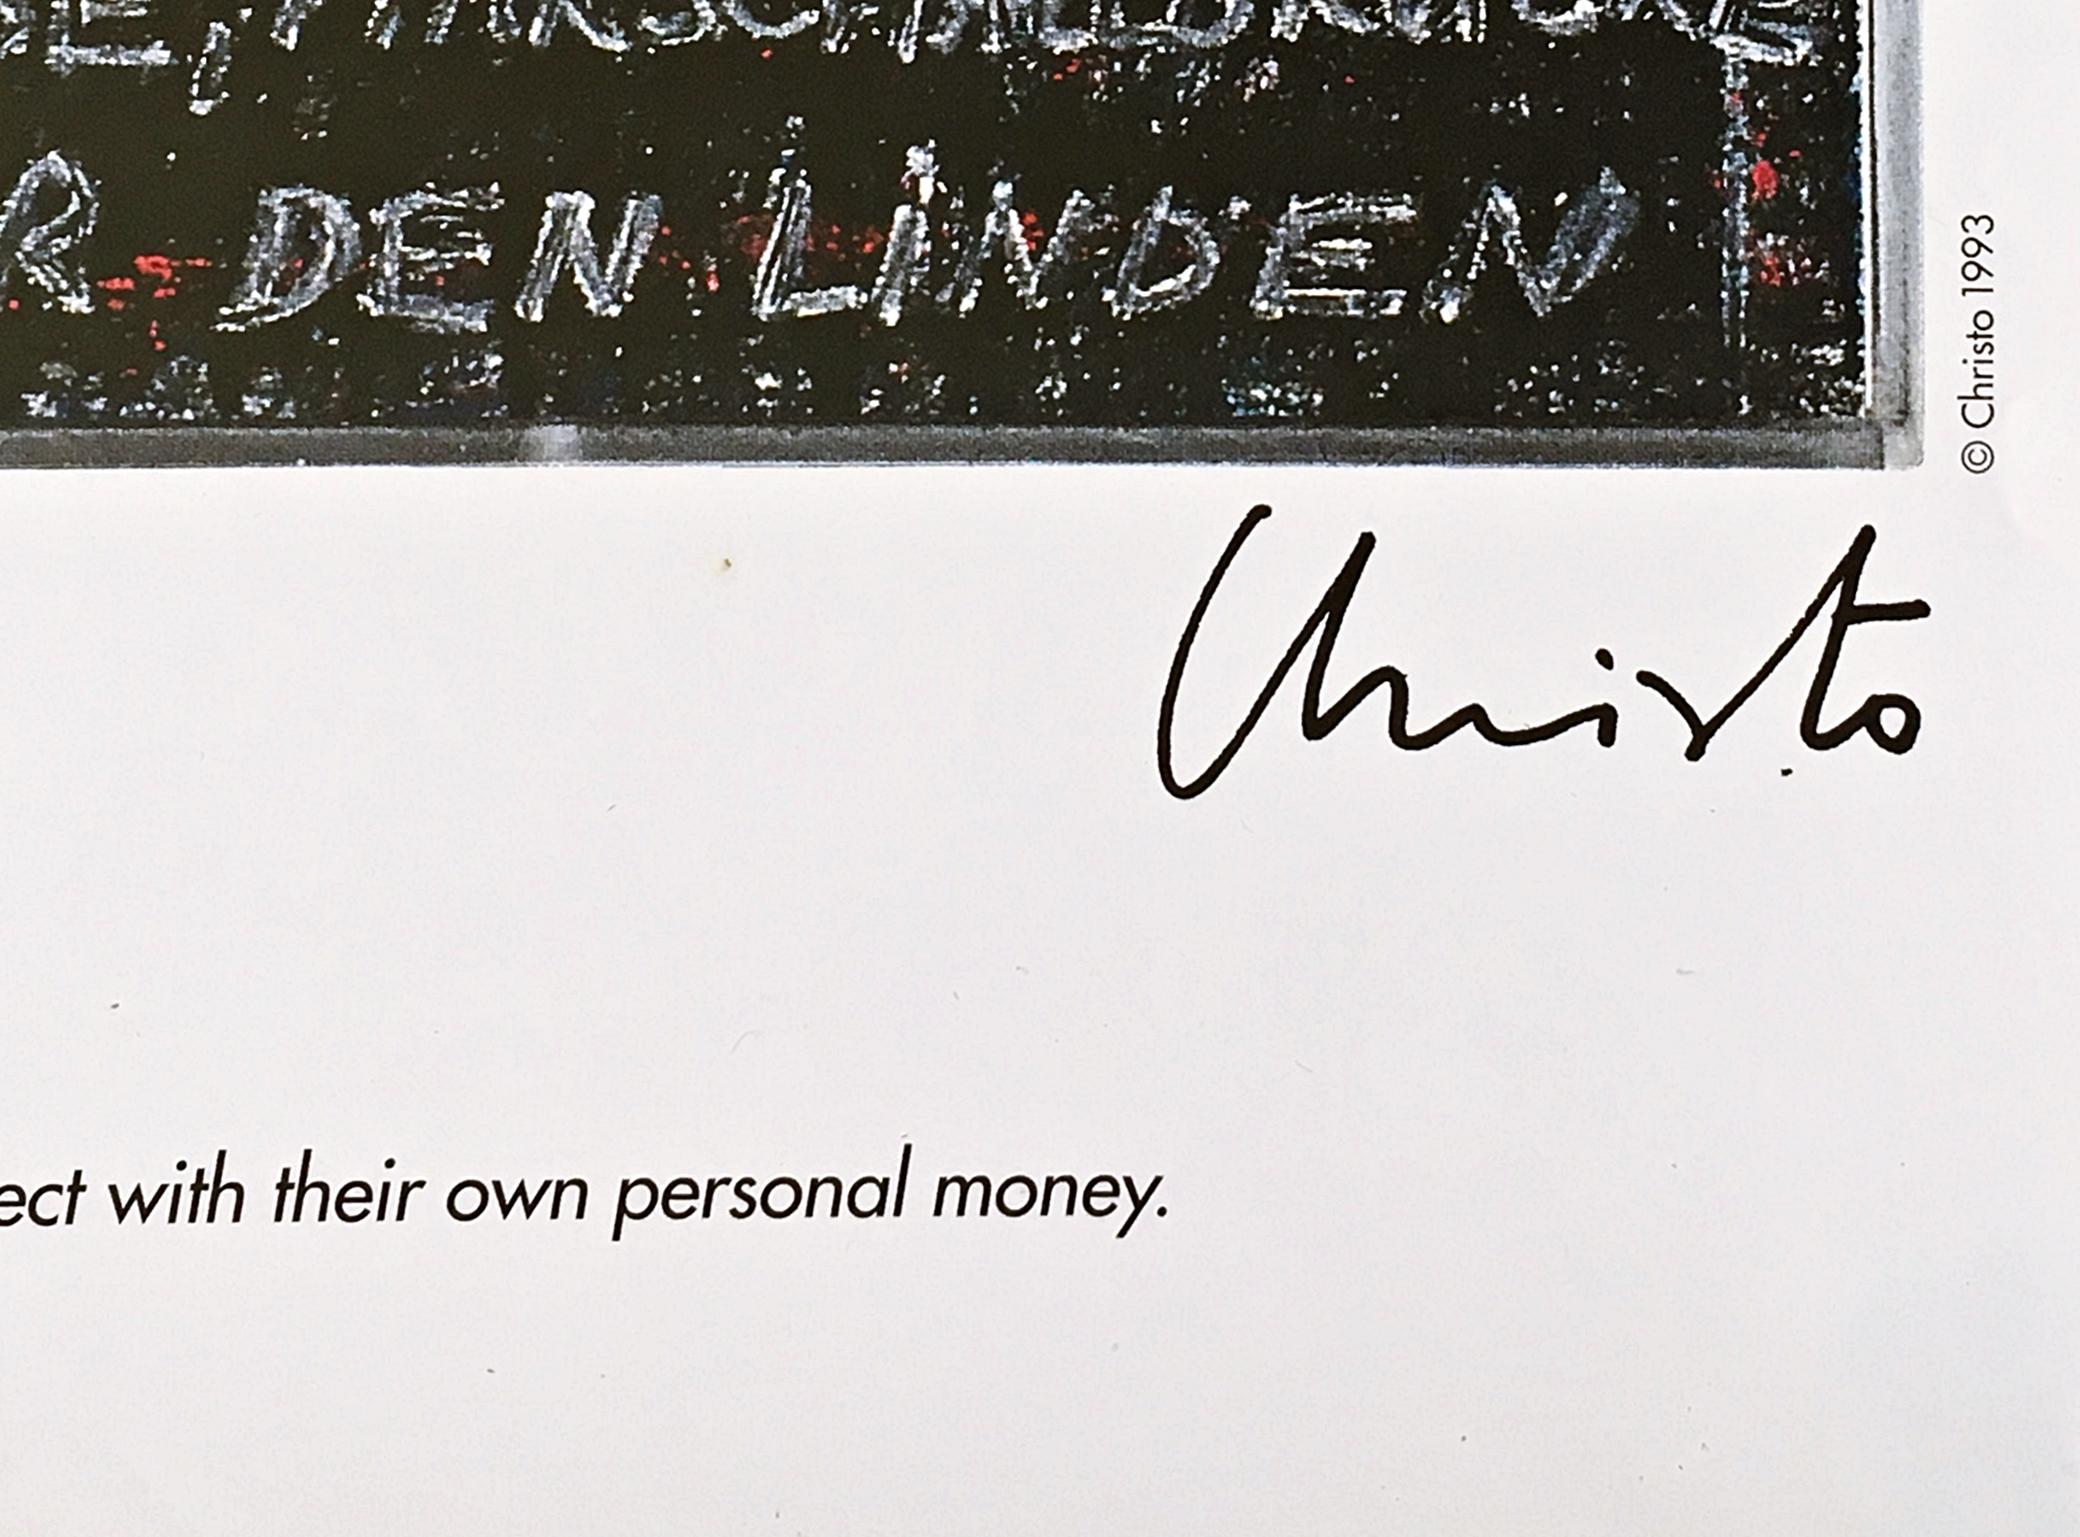 MARSCHALLBRÜCKE
R DEN LINDEN
© Christo 1993
Christo
ect with their own personal money.